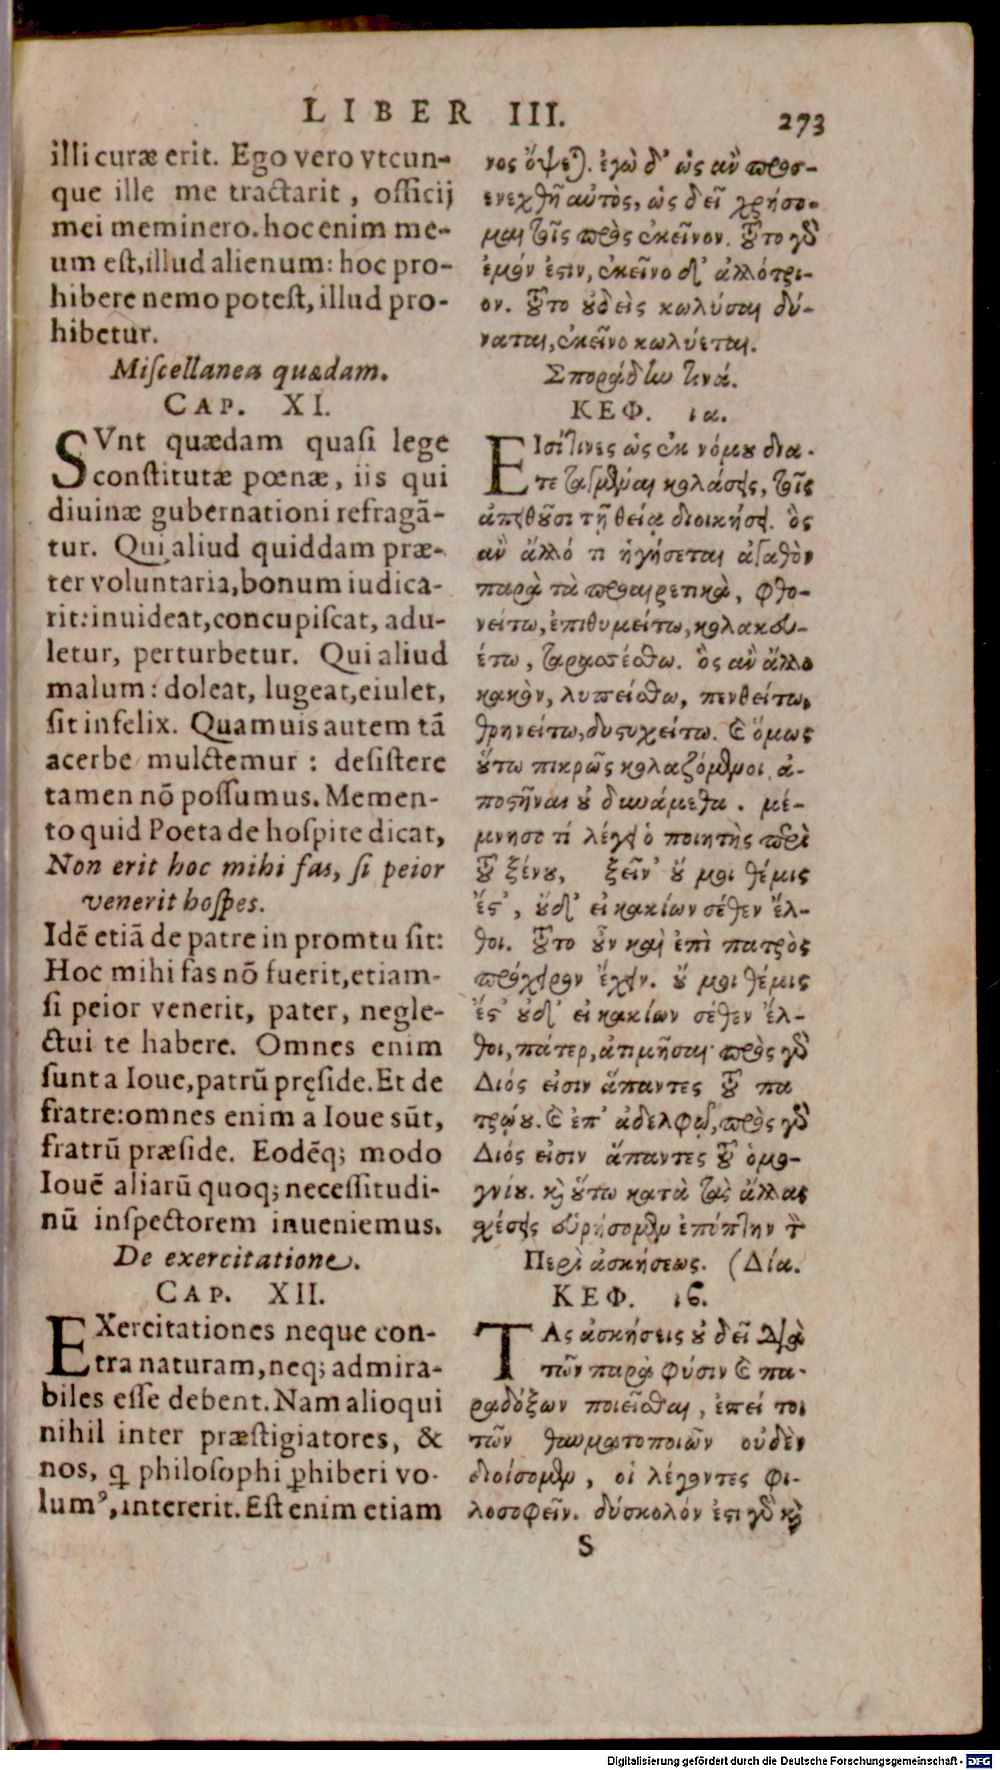 LIBER III. 273
illi curæ erit. Ego vero vtcun-
que ille me tractarit, officij
mei meminero. hoc enim me-
um est, illud alienum: hoc pro-
hibere nemo potest, illud pro-
hibetur.
Miscellanea quædam.
CAP. XI.
SVnt quædam quasi lege
constitutæ pœnæ, iis qui
diuinæ gubernationi refragā-
tur. Qui aliud quiddam præ-
ter voluntaria, bonum iudica-
rit: inuideat, concupiscat, adu-
letur, perturbetur. Qui aliud
malum: doleat, lugeat, eiulet,
sit infelix. Quamuis autem tā
acerbe mulctemur: desistere
tamen nō possumus. Memen-
to quid Poeta de hospite dicat,
Non erit hoc mihi fas, si peior
venerit hospes.
Idē etiā de patre in promtu sit:
Hoc mihi fas nō fuerit, etiam-
si peior venerit, pater, negle-
ctui te habere. Omnes enim
sunt a Ioue, patrū pręside. Et de
fratre: omnes enim a Ioue sūt,
fratrū præside. Eodēq; modo
Iouē aliarū quoq; necessitudi-
nū inspectorem inueniemus.
De exercitatione.
CAP. XII.
EXercitationes neque con-
tra naturam, neq; admira-
biles esse debent. Nam alioqui
nihil inter præstigiatores, &
nos, q philosophi ꝑhiberi vo-
lumꝰ, intererit. Est enim etiam
νος ὄψεται. ἐγὼ δ' ὡς ἂν προσ-
ενεχθῇ αὐτὸς, ὡς δεῖ χρήσο-
μαι τοῖς πρὸς ἐκεῖνον. τοῦτο γὸ
ἐμόν ἐστιν, ἐκεῖνο δ' ἀλλότρι-
ον. τοῦτο οὐδεὶς κωλῦσαι δύ-
ναται, ἐκεῖνο κωλύεται.
Σποράδην τινά.
ΚΕΦ. ια.
ΕΙσί τινες ὡς ἐκ νόμου δια-
τεταγμέναι κολάσεις, τοῖς
ἀπειθοῦσι τῇ θείᾳ διοικήσει. ὃς
ἂν ἄλλό τι ἡγήσεται ἀγαθὸν
παρὰ τὰ προαιρετικὰ, φθο-
νείτω, ἐπιθυμείτω, κολακευ-
έτω, ταρασσέσθω. ὃς ἂν ἄλλο
κακὸν, λυπείσθω, πενθείτω,
θρηνείτω, δυστυχείτω. καὶ ὅμως
οὕτω πικρῶς κολαζόμενοι ἀ-
ποστῆναι οὐ δυνάμεθα. μέ-
μνησο τί λέγει ὁ ποιητὴς περὶ
τοῦ ξένου, ξεῖν' οὔ μοι θέμις
ἔστ', οὐδ' εἰ κακίων σέθεν ἔλ-
θοι. τοῦτο οὖν καὶ ἐπὶ πατρὸς
πρόχειρον ἔχειν. οὔ μοι θέμις
ἔστ' οὐδ' εἰ κακίων σέθεν ἔλ-
θοι, πάτερ, ἀτιμῆσαι· πρὸς γὸ
Διός εἰσιν ἅπαντες τοῦ πα
τρῴου. καὶ ἐπ' ἀδελφῷ, πρὸς γὸ
Διός εἰσιν ἅπαντες τοῦ ὁμο-
γνίου. καὶ οὕτω κατὰ τὰς ἄλλας
σχέσεις εὑρήσομεν ἐπόπτην τὸν
Περὶ ἀσκήσεως. (Δία.
ΚΕΦ. ιϛ.
ΤΑς ἀσκήσεις οὐ δεῖ διὰ
τῶν παρὰ φύσιν καὶ πα-
ραδόξων ποιεῖσθαι, ἐπεί τοι
τῶν θαυματοποιῶν οὐδὲν
διοίσομεν, οἱ λέγοντες φι-
λοσοφεῖν. δύσκολόν ἐστι γὸ καὶ
S
Digitalisierung gefördert durch die Deutsche Forschungsgemeinschaft - DFG